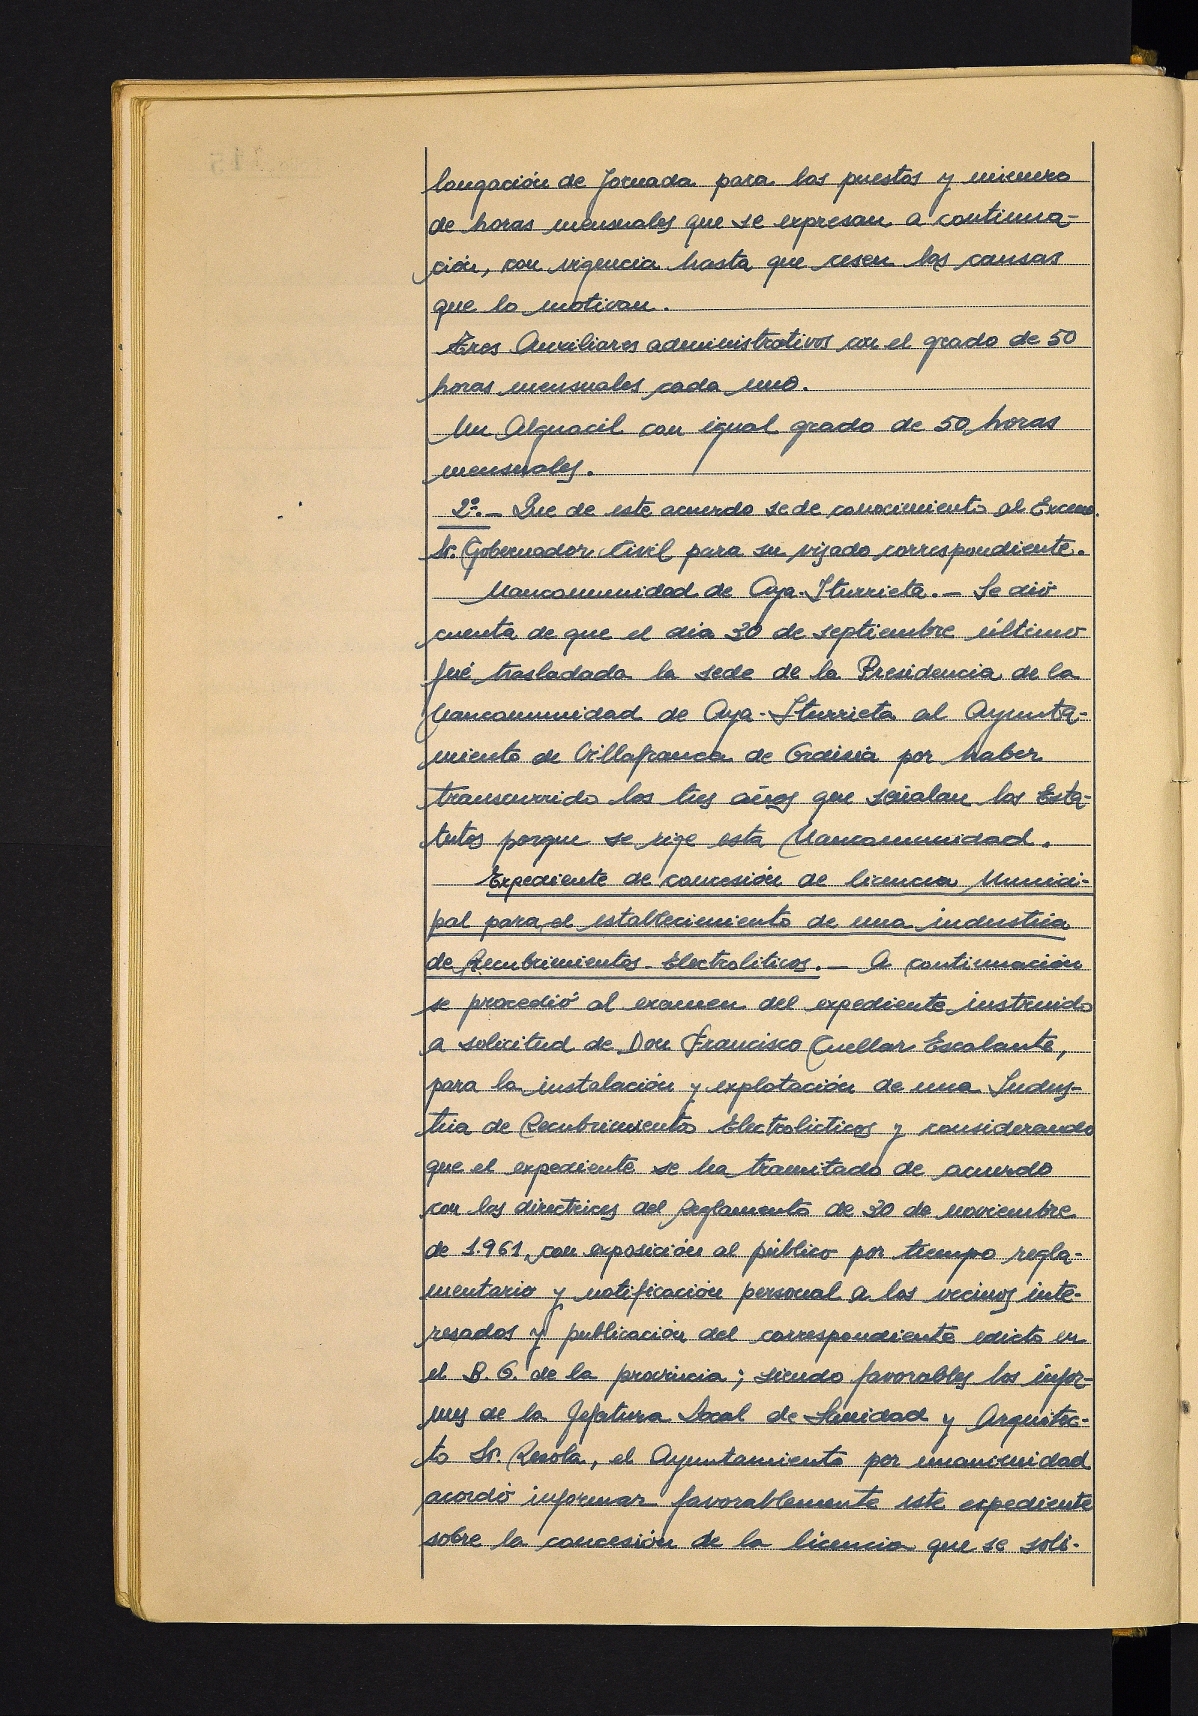 longación de Jornada para los puestos y número
de horas mensuales que se expresan a continua-
ción, con vigencia hasta que cesen las causas
que lo motivan.
Tres Auxiliares administrativos con el grado de 50
horas mensuales cada uno.
Un Alguacil con igual grado de 50 horas
mensuales.
2º.- Que de este acuerdo se de conocimiento al Excmo.
Sr. Gobernador Civil para su visado correspondiente.
Mancomunidad de Aya-Iturrieta.- Se dió
cuenta de que el dia 30 de septiembre último
fué trasladada la sede de la Presidencia de la
Mancomunidad de Aya-Iturrieta al Ayunta-
miento de Villafranca de Ordisia por haber
transcurrido los tres años que señalan los Esta-
tutos porque se rige esta Mancomunidad.
Expediente de concesión de licencia Munici-
pal para el establecimiento de una industria
de Recubrimientos Electroliticos.- A continuación
se procedió al examen del expediente instruido
a solicitud de Don Francisco Cuellar Escalante,
para la instalación y explotación de una Indus-
tria de Recubrimientos Electrolicticos y considerando
que el expediente se ha tramitado de acuerdo
con las directrices del Reglamento de 30 de noviembre
de 1.961, con exposición al público por tiempo regla-
mentario y notificación personal a los vecinos inte-
resados y publicación del correspondiente edicto en
el B. O. de la provincia; siendo favorables los infor-
mes de la Jefatura Local de Sanidad y Arquitec-
to Sr. Resola, el Ayuntamiento por unanimidad
acordó informar favorablemente este expediente
sobre la concesión de la licencia que se soli-